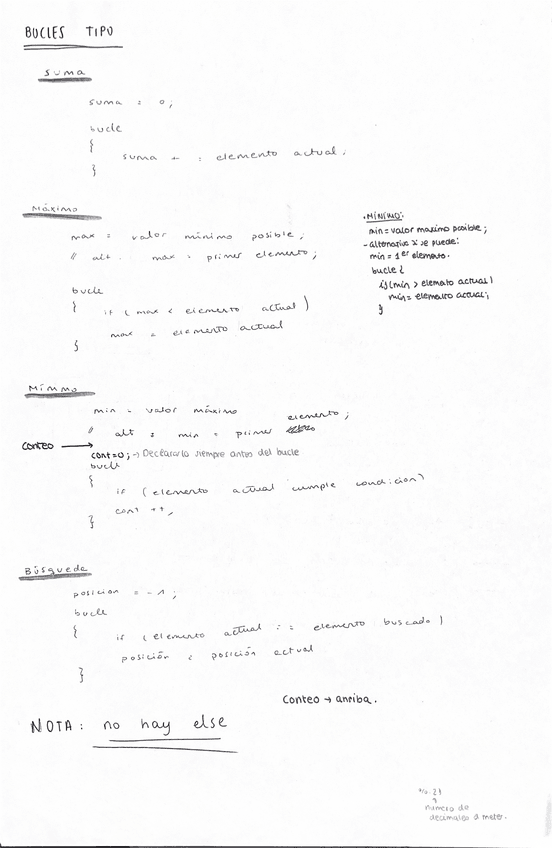 BUCLES TIPO
Suma
suma = 0;
bucle
{
suma + = elemento actual;
}
Máximo
max = valor mínimo posible;
// alt. max = primer elemento;
bucle
{ if ( max < elemento actual )
max = elemento actual
}
·MÍNIMO:
min = valor maximo posible;
- alternativa x se puede:
min = 1er elemento.
bucle {
if (min > elemento actual)
min = elemento actual;
}
Mínimo
min = valor máximo elemento;
// alt = min = primer
CONTEO →
cont=0; -> Declararla siempre antes del bucle
bucle
{
if ( elemento actual cumple condicion)
cont ++,
}
Búsqueda
posicion = -1;
bucle
{ if ( elemento actual == elemento buscado )
posición = posición actual
}
Conteo → arriba.
NOTA: no hay else
%.2f
numero de
decimales a meter.